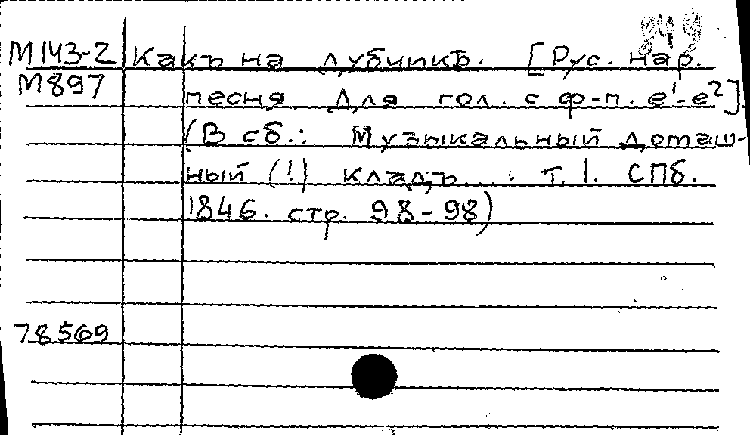 М143-2 Какъ на дубчикѣ. [Рус. нар.
М897 песня. Для гол. с ф-п. e¹-e²].
(В сб.: Музыкальный домаш-
ный (!) кладъ... т. 1. СПб.
1846. стр. 98-98)
78569